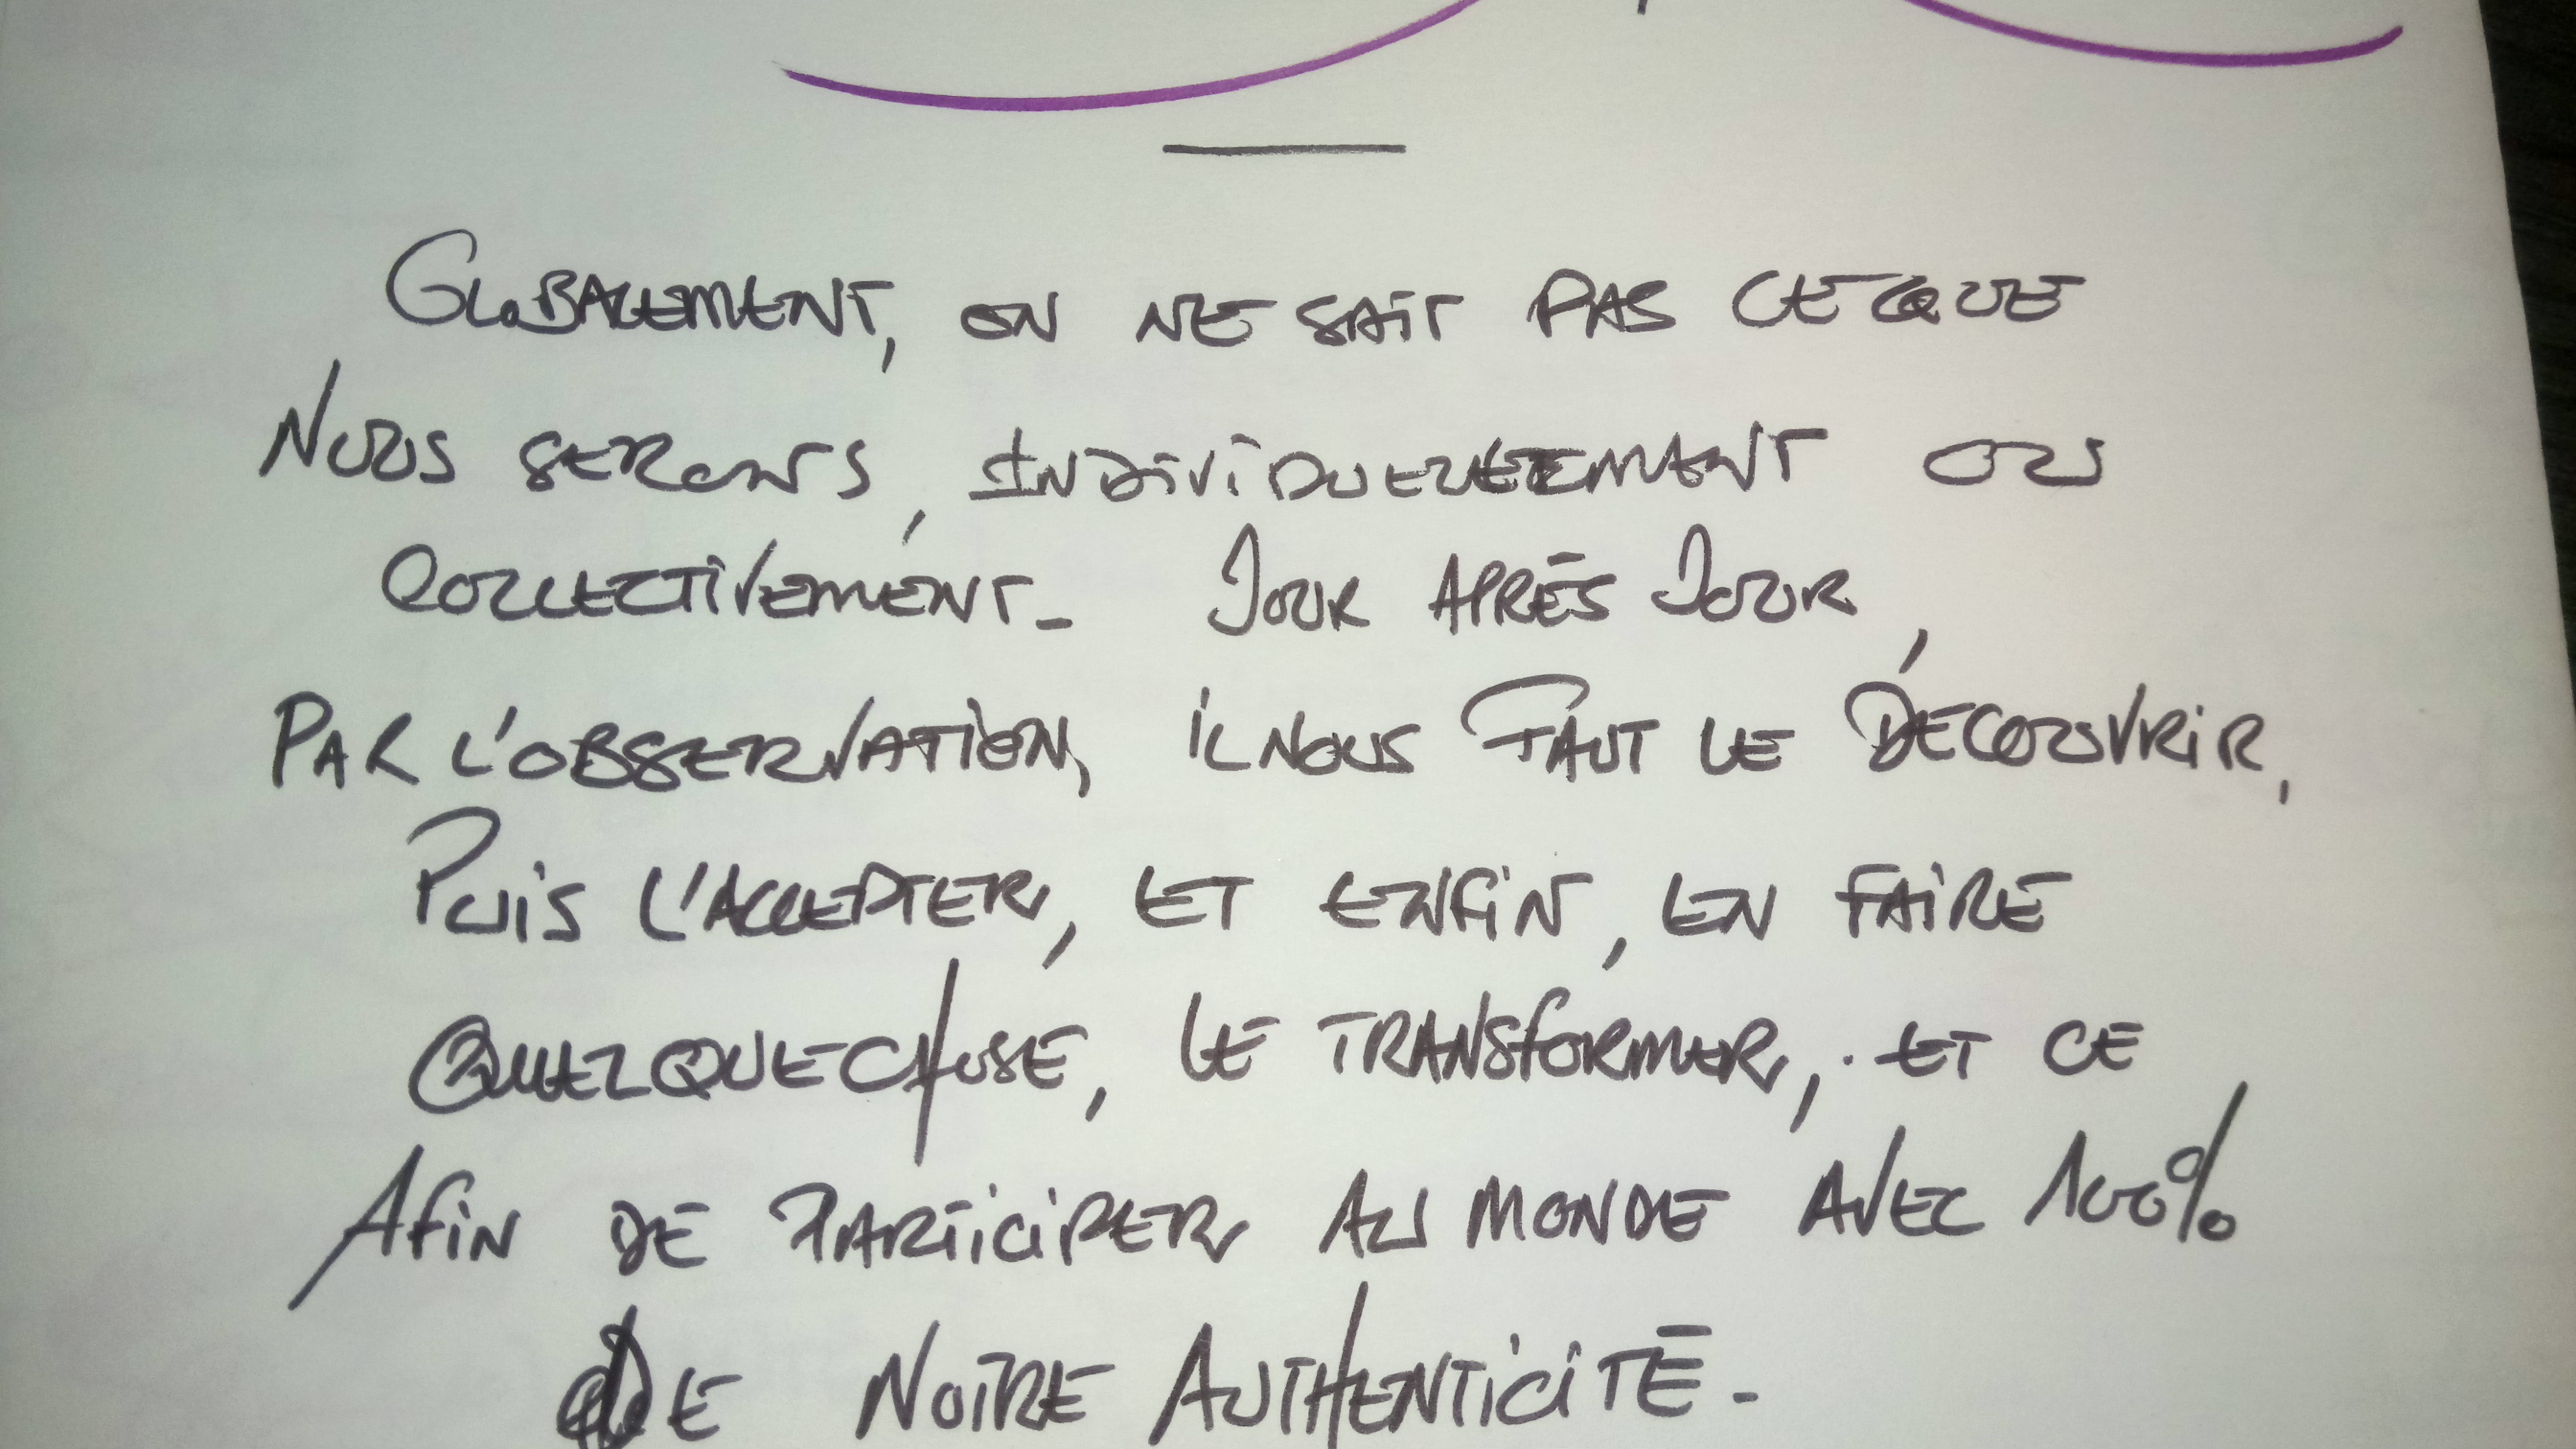 GLOBALEMENT, ON NE SAIT PAS CE QUE
NOUS SERONS, INDIVIDUELLEMENT OU
COLLECTIVEMENT_ JOUR APRÈS JOUR,
PAR L'OBSERVATION, IL NOUS FAUT LE DÉCOUVRIR,
PUIS L'ACCEPTER, ET ENFIN, EN FAIRE
QUELQUE CHOSE, LE TRANSFORMER, . ET CE
AFIN DE PARTICIPER AU MONDE AVEC 100%
DE NOTRE AUTHENTICITÉ -